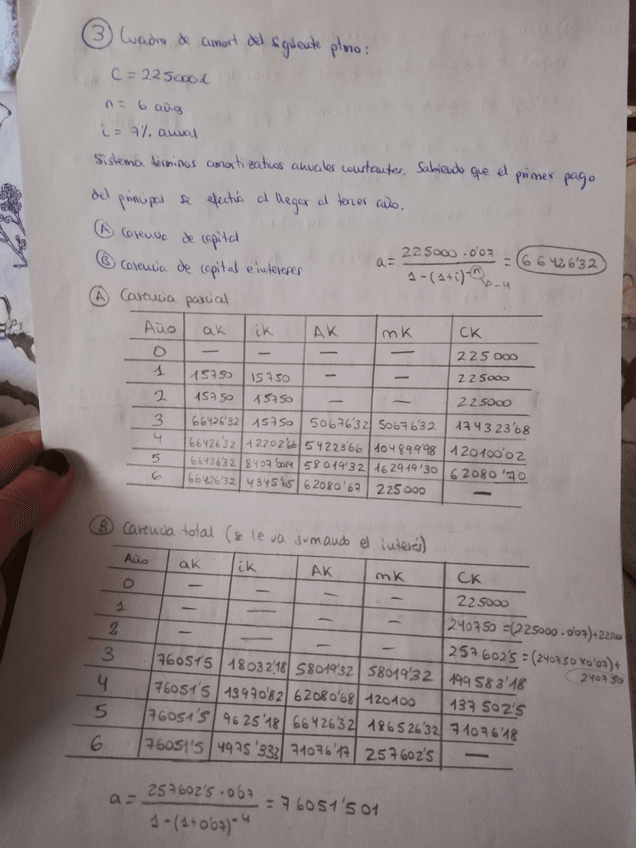 ③ Cuadro de amort del siguiente ptmo:
C = 225000€
n = 6 años
i = 7% anual
Sistema términos amortizativos anuales constantes. Sabiendo que el primer pago
del principal se efectúa al llegar al tercer año.
Ⓐ Carencia de capital
Ⓑ Carencia de capital e intereses
a = 225000 · 0'07 / 1-(1+i)^-n = 66426'32
n-4
Ⓐ Carencia parcial
Año aK iK AK mK CK
0 — — — — 225000
1 15750 15750 — — 225000
2 15750 15750 — — 225000
3 66426'32 15750 50676'32 50676'32 174323'68
4 66426'32 12202'66 54223'66 104899'98 120100'02
5 66426'32 8407'0014 58019'32 162919'30 62080'70
6 66426'32 4345'65 62080'67 225000 —
Ⓑ Carencia total (se le va sumando el interés)
Año aK iK AK mK CK
0 — — — — 225000
1 — — — — 240750 = (225000 · 0'07) +
2 — — — — 257602'5 = (240750 x 0'07) + 240750
3 76051'5 18032'18 58019'32 58019'32 199583'18
4 76051'5 13970'82 62080'68 120100 137502'5
5 76051'5 9625'18 66426'32 186526'32 71076'18
6 76051'5 4975'333 71076'17 257602'5 —
a = 257602'5 · 0'07 / 1-(1+0'07)^-4 = 76051'501